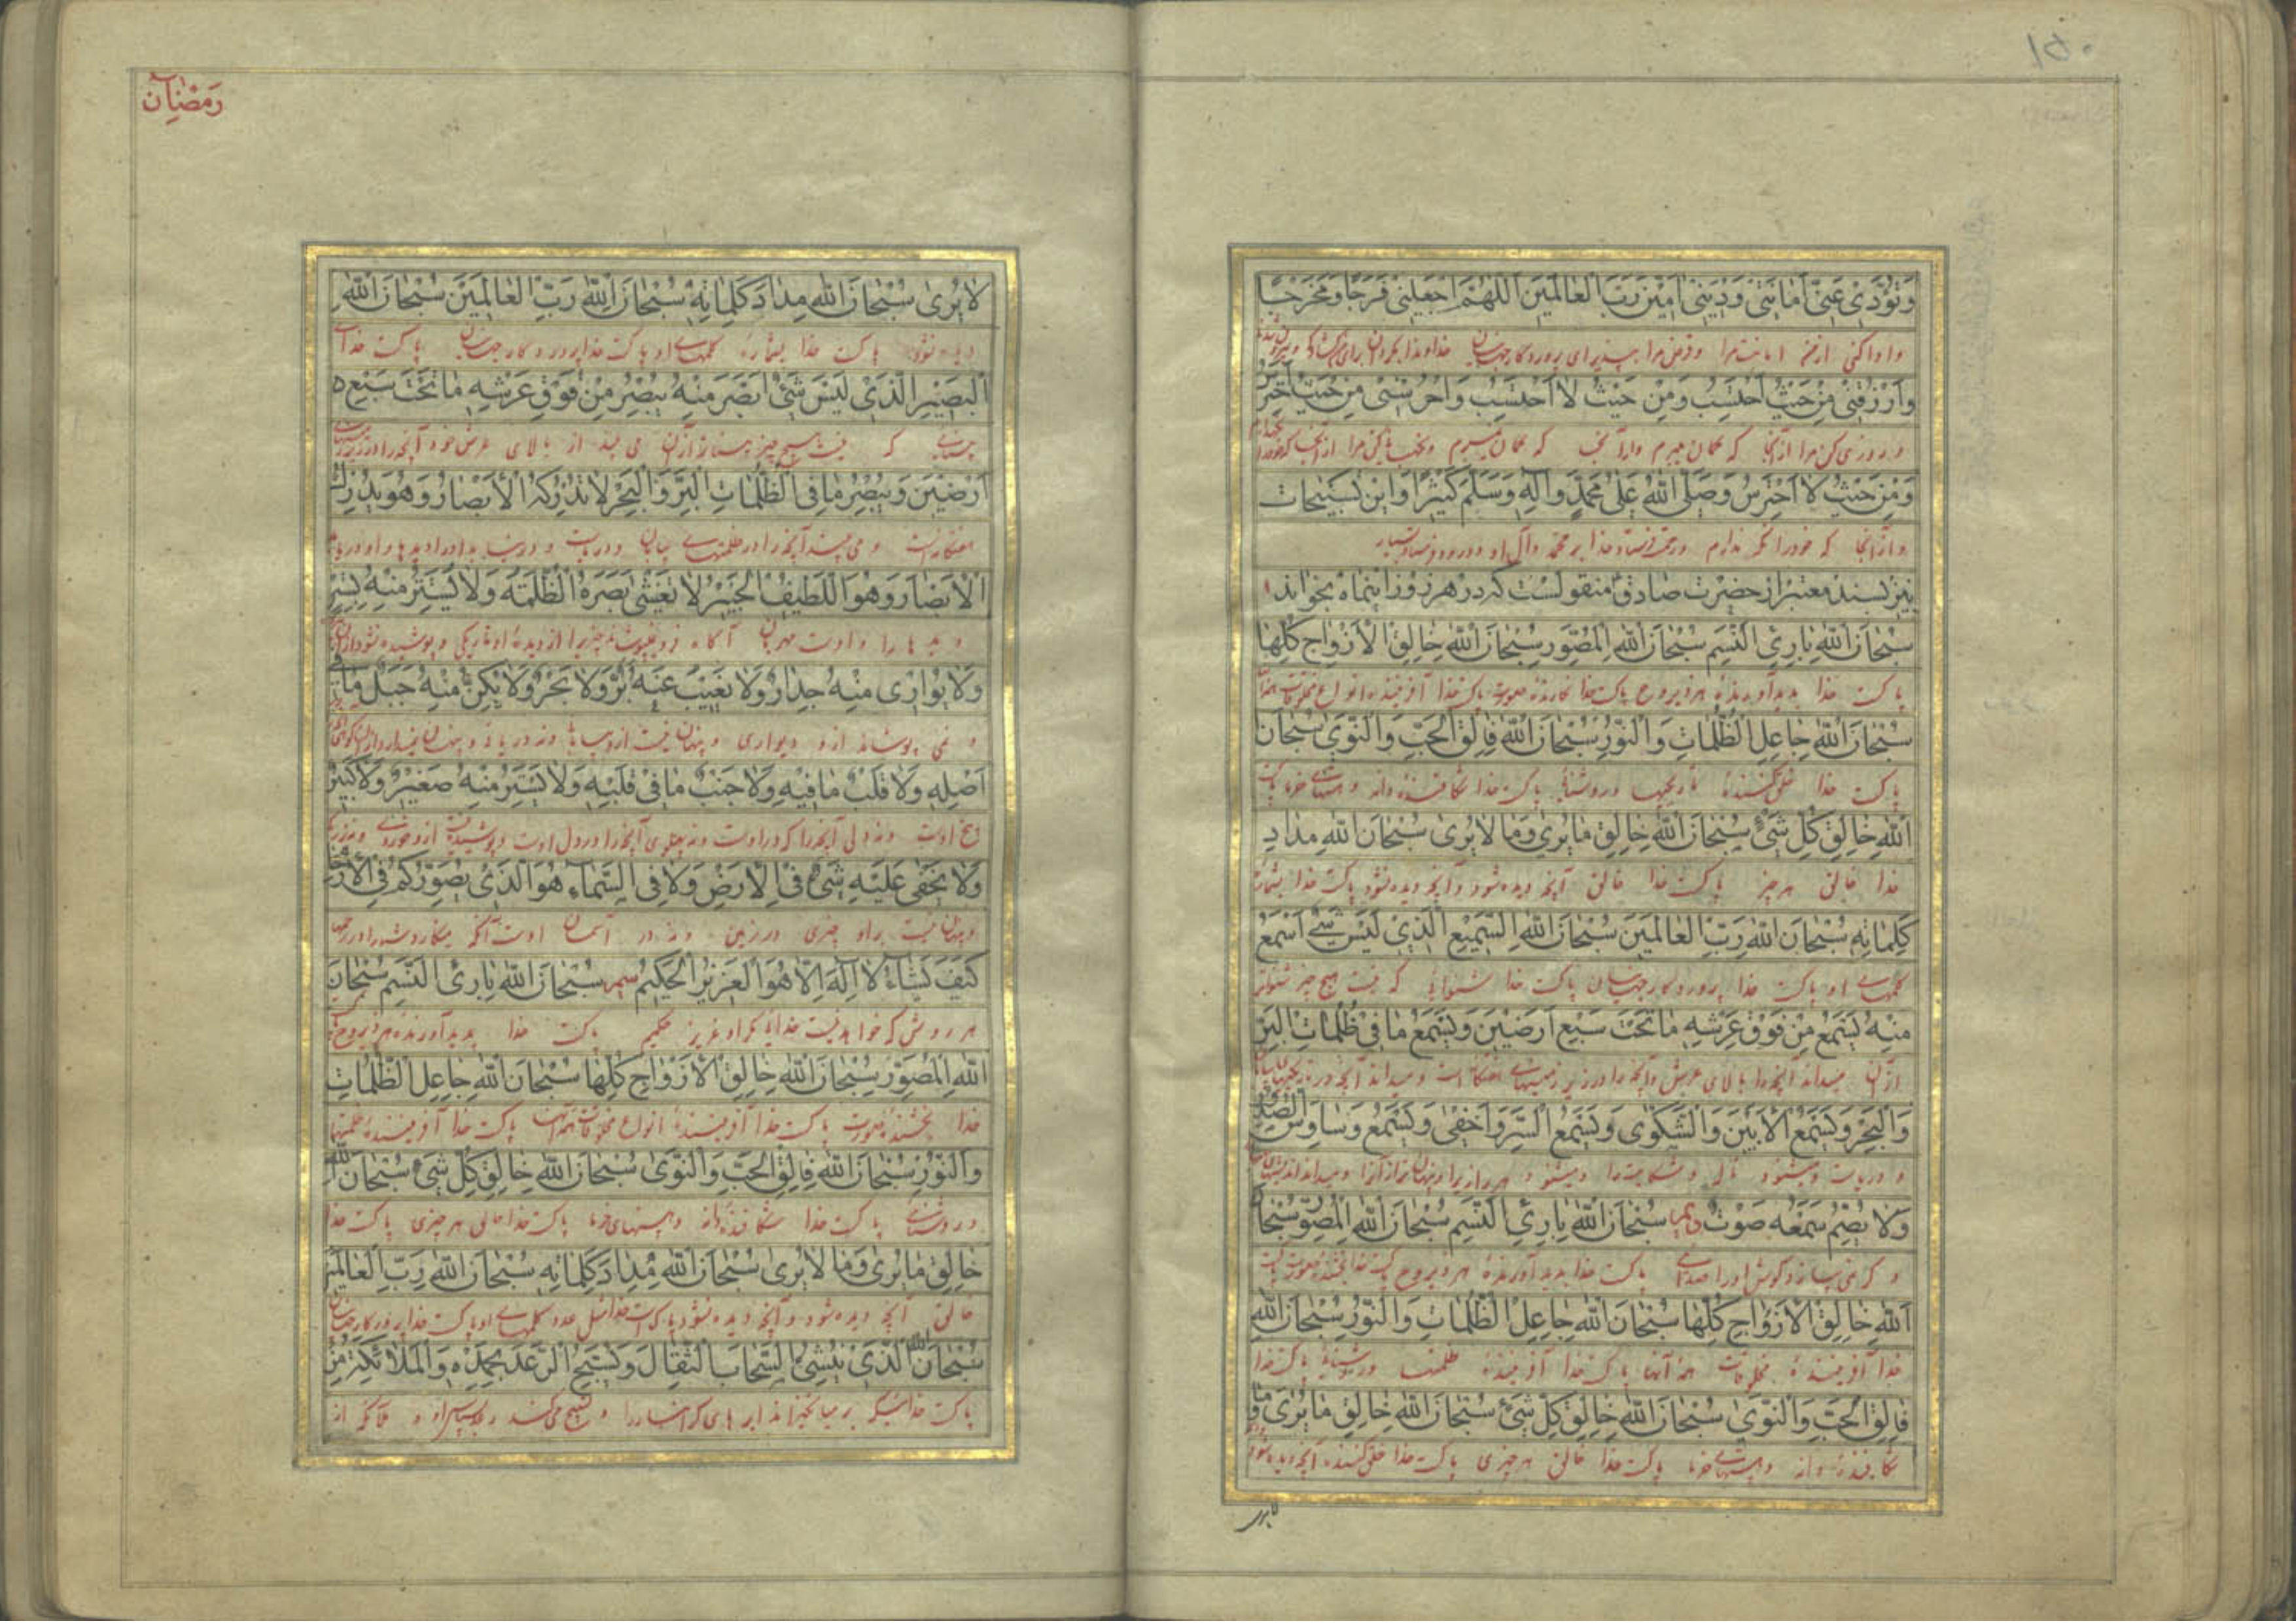 ١٥٠
وَتُؤَدِّيَ عَنِّي أَمَانَتِي وَدَيْنِي اٰمِينَ رَبَّ الْعَالَمِينَ اَللّٰهُمَّ اجْعَلْنِي فَرَجًا وَمَخْرَجًا
و ادا کنی از من امانت مرا و قرض مرا بپذیر ای پروردگار جهانیان خداوندا بگردان برای من
وَارْزُقْنِي مِنْ حَيْثُ أَحْتَسِبُ وَمِنْ حَيْثُ لَا أَحْتَسِبُ وَاحْرُسْنِي مِنْ حَيْثُ أَحْتَرِسُ
و روزی کن مرا از آنجا که گمان میبرم و از آنجا که گمان نمیبرم
وَمِنْ حَيْثُ لَا أَحْتَرِسُ وَصَلَّى اللهُ عَلَى مُحَمَّدٍ وَآلِهِ وَسَلَّمَ كَثِيرًا وَاين تسبيحات
و از آنجا که خود را نگه ندارم و رحمت فرستاد خدا بر محمد و آل او
نيز بسند معتبر از حضرت صادق منقولست كه در هر روز اينماه بخواند
سُبْحَانَ اللهِ بَارِئِ النَّسَمِ سُبْحَانَ اللهِ الْمُصَوِّرِ سُبْحَانَ اللهِ خَالِقِ الْأَزْوَاجِ كُلِّهَا
پاکست خدا پدید آورنده هر ذیروح پاکست خدا نگارنده صورت پاکست خدا آفریننده انواع مخلوقات
سُبْحَانَ اللهِ جَاعِلِ الظُّلُمَاتِ وَالنُّورِ سُبْحَانَ اللهِ فَالِقِ الْحَبِّ وَالنَّوَى سُبْحَانَ
پاکست خدا خلق کننده تاریکیها و روشنایی پاکست خدا شکافنده دانه و هستهای خرما پاکست
اللهِ خَالِقِ كُلِّ شَيْءٍ سُبْحَانَ اللهِ خَالِقِ مَا يُرَى وَمَا لَا يُرَى سُبْحَانَ اللهِ مِدَادَ
خدا خالق هر چیز پاکست خدا خالق آنچه دیده شود و آنچه دیده نشود پاکست خدا بشماره
كَلِمَاتِهِ سُبْحَانَ اللهِ رَبِّ الْعَالَمِينَ سُبْحَانَ اللهِ السَّمِيعِ الَّذِي لَيْسَ شَيْءٌ أَسْمَعَ
کلمهای او پاکست خدا پروردگار جهانیان پاکست خدا شنوایی که نیست هیچ چیز شنواتر
مِنْهُ يَسْمَعُ مِنْ فَوْقِ عَرْشِهِ مَا تَحْتَ سَبْعِ أَرَضِينَ وَيَسْمَعُ مَا فِي ظُلُمَاتِ الْبَرِّ
از آن میداند آنچه را بالای عرش و آنچه را در زیر زمینهای هفتگانه است و میداند آنچه در تاریکیهای
وَالْبَحْرِ وَيَسْمَعُ الْأَنِينَ وَالشَّكْوَى وَيَسْمَعُ السِّرَّ وَأَخْفَى وَيَسْمَعُ وَسَاوِسَ الصُّدُورِ
و دریاست و میشنود ناله و شکایت را و میشنود
وَلَا يُصِمُّ سَمْعَهُ صَوْتٌ سُبْحَانَ اللهِ بَارِئِ النَّسَمِ سُبْحَانَ اللهِ الْمُصَوِّرِ سُبْحَانَ
و کر نمی سازد گوش او را صدای پاکست خدا پدید آورنده هر ذیروح پاکست خدا
اللهِ خَالِقِ الْأَزْوَاجِ كُلِّهَا سُبْحَانَ اللهِ جَاعِلِ الظُّلُمَاتِ وَالنُّورِ سُبْحَانَ اللهِ
خدا آفریننده مخلوقات همه آنها پاکست خدا آفریننده ظلمتها و روشنایی پاکست خدا
فَالِقِ الْحَبِّ وَالنَّوَى سُبْحَانَ اللهِ خَالِقِ كُلِّ شَيْءٍ سُبْحَانَ اللهِ خَالِقِ مَا يُرَى وَمَا
شکافنده دانه و هستهای خرما پاکست خدا خالق هر چیزی پاکست خدا خلق کننده آنچه دیده شود
لا یری
رمضان
لَا يُرَى سُبْحَانَ اللهِ مِدَادَ كَلِمَاتِهِ سُبْحَانَ اللهِ رَبِّ الْعَالَمِينَ سُبْحَانَ اللهِ
دیده نشود پاکست خدا بشماره کلمهای او پاکست خدا پروردگار جهانیان پاکست خدای
الْبَصِيرِ الَّذِي لَيْسَ شَيْءٌ أَبْصَرَ مِنْهُ يُبْصِرُ مِنْ فَوْقِ عَرْشِهِ مَا تَحْتَ سَبْعِ
بینایی که نیست هیچ چیز بیناتر از آن می بیند از بالای عرش خود آنچه را در زیر
أَرَضِينَ وَيُبْصِرُ مَا فِي ظُلُمَاتِ الْبَرِّ وَالْبَحْرِ لَا تُدْرِكُهُ الْأَبْصَارُ وَهُوَ يُدْرِكُ
هفتگانه است و می بیند آنچه را در ظلمتهای بیابان و دریاست
الْأَبْصَارَ وَهُوَ اللَّطِيفُ الْخَبِيرُ لَا تُغْشِي بَصَرَهُ الظُّلْمَةُ وَلَا يُسْتَتَرُ مِنْهُ بِسِتْرٍ
دیدها را و اوست مهربان آگاه
وَلَا يُوَارِي مِنْهُ جِدَارٌ وَلَا يَغِيبُ عَنْهُ بَرٌّ وَلَا بَحْرٌ وَلَا يَكُنُّ مِنْهُ جَبَلٌ مَا فِي
و نمی پوشاند از او دیواری و پنهان نیست از او
أَصْلِهِ وَلَا قَلْبٌ مَا فِيهِ وَلَا جَنْبٌ مَا فِي قَلْبِهِ وَلَا يَسْتَتِرُ مِنْهُ صَغِيرٌ وَلَا كَبِيرٌ
بیخ اوست و نه دلی آنچه را که در اوست و نه پهلوی آنچه را در دل اوست
وَلَا يَخْفَى عَلَيْهِ شَيْءٌ فِي الْأَرْضِ وَلَا فِي السَّمَاءِ هُوَ الَّذِي يُصَوِّرُكُمْ فِي الْأَرْحَامِ
و پنهان نیست بر او چیزی در زمین و نه در آسمان اوست آنکه
كَيْفَ يَشَاءُ لَا اِلٰهَ اِلَّا هُوَ الْعَزِيزُ الْحَكِيمُ سُبْحَانَ اللهِ بَارِئِ النَّسَمِ سُبْحَانَ
هر روش که خواهد نیست خدایی مگر او عزیز حکیم پاکست خدا پدید آورنده هر ذیروح
اللهِ الْمُصَوِّرِ سُبْحَانَ اللهِ خَالِقِ الْأَزْوَاجِ كُلِّهَا سُبْحَانَ اللهِ جَاعِلِ الظُّلُمَاتِ
خدا بخشنده صورت پاکست خدا آفریننده انواع مخلوقات پاکست خدا آفریننده ظلمتها
وَالنُّورِ سُبْحَانَ اللهِ فَالِقِ الْحَبِّ وَالنَّوَى سُبْحَانَ اللهِ خَالِقِ كُلِّ شَيْءٍ سُبْحَانَ اللهِ
و روشنایی پاکست خدا شکافنده دانه و هستهای خرما پاکست خدا خالق هر چیزی پاکست خدا
خَالِقِ مَا يُرَى وَمَا لَا يُرَى سُبْحَانَ اللهِ مِدَادَ كَلِمَاتِهِ سُبْحَانَ اللهِ رَبِّ الْعَالَمِينَ
خالق آنچه دیده شود و آنچه دیده نشود پاکست خدا مثل عدد کلمهای او پاکست خدا پروردگار جهانیان
سُبْحَانَ اللهِ الَّذِي يُنْشِئُ السَّحَابَ الثِّقَالَ وَيُسَبِّحُ الرَّعْدُ بِحَمْدِهِ وَالْمَلَائِكَةُ مِنْ
پاکست خدائیکه بر میانگیزاند ابرهای گرانبار را و تسبیح می کند رعد بسپاس او و ملائکه از